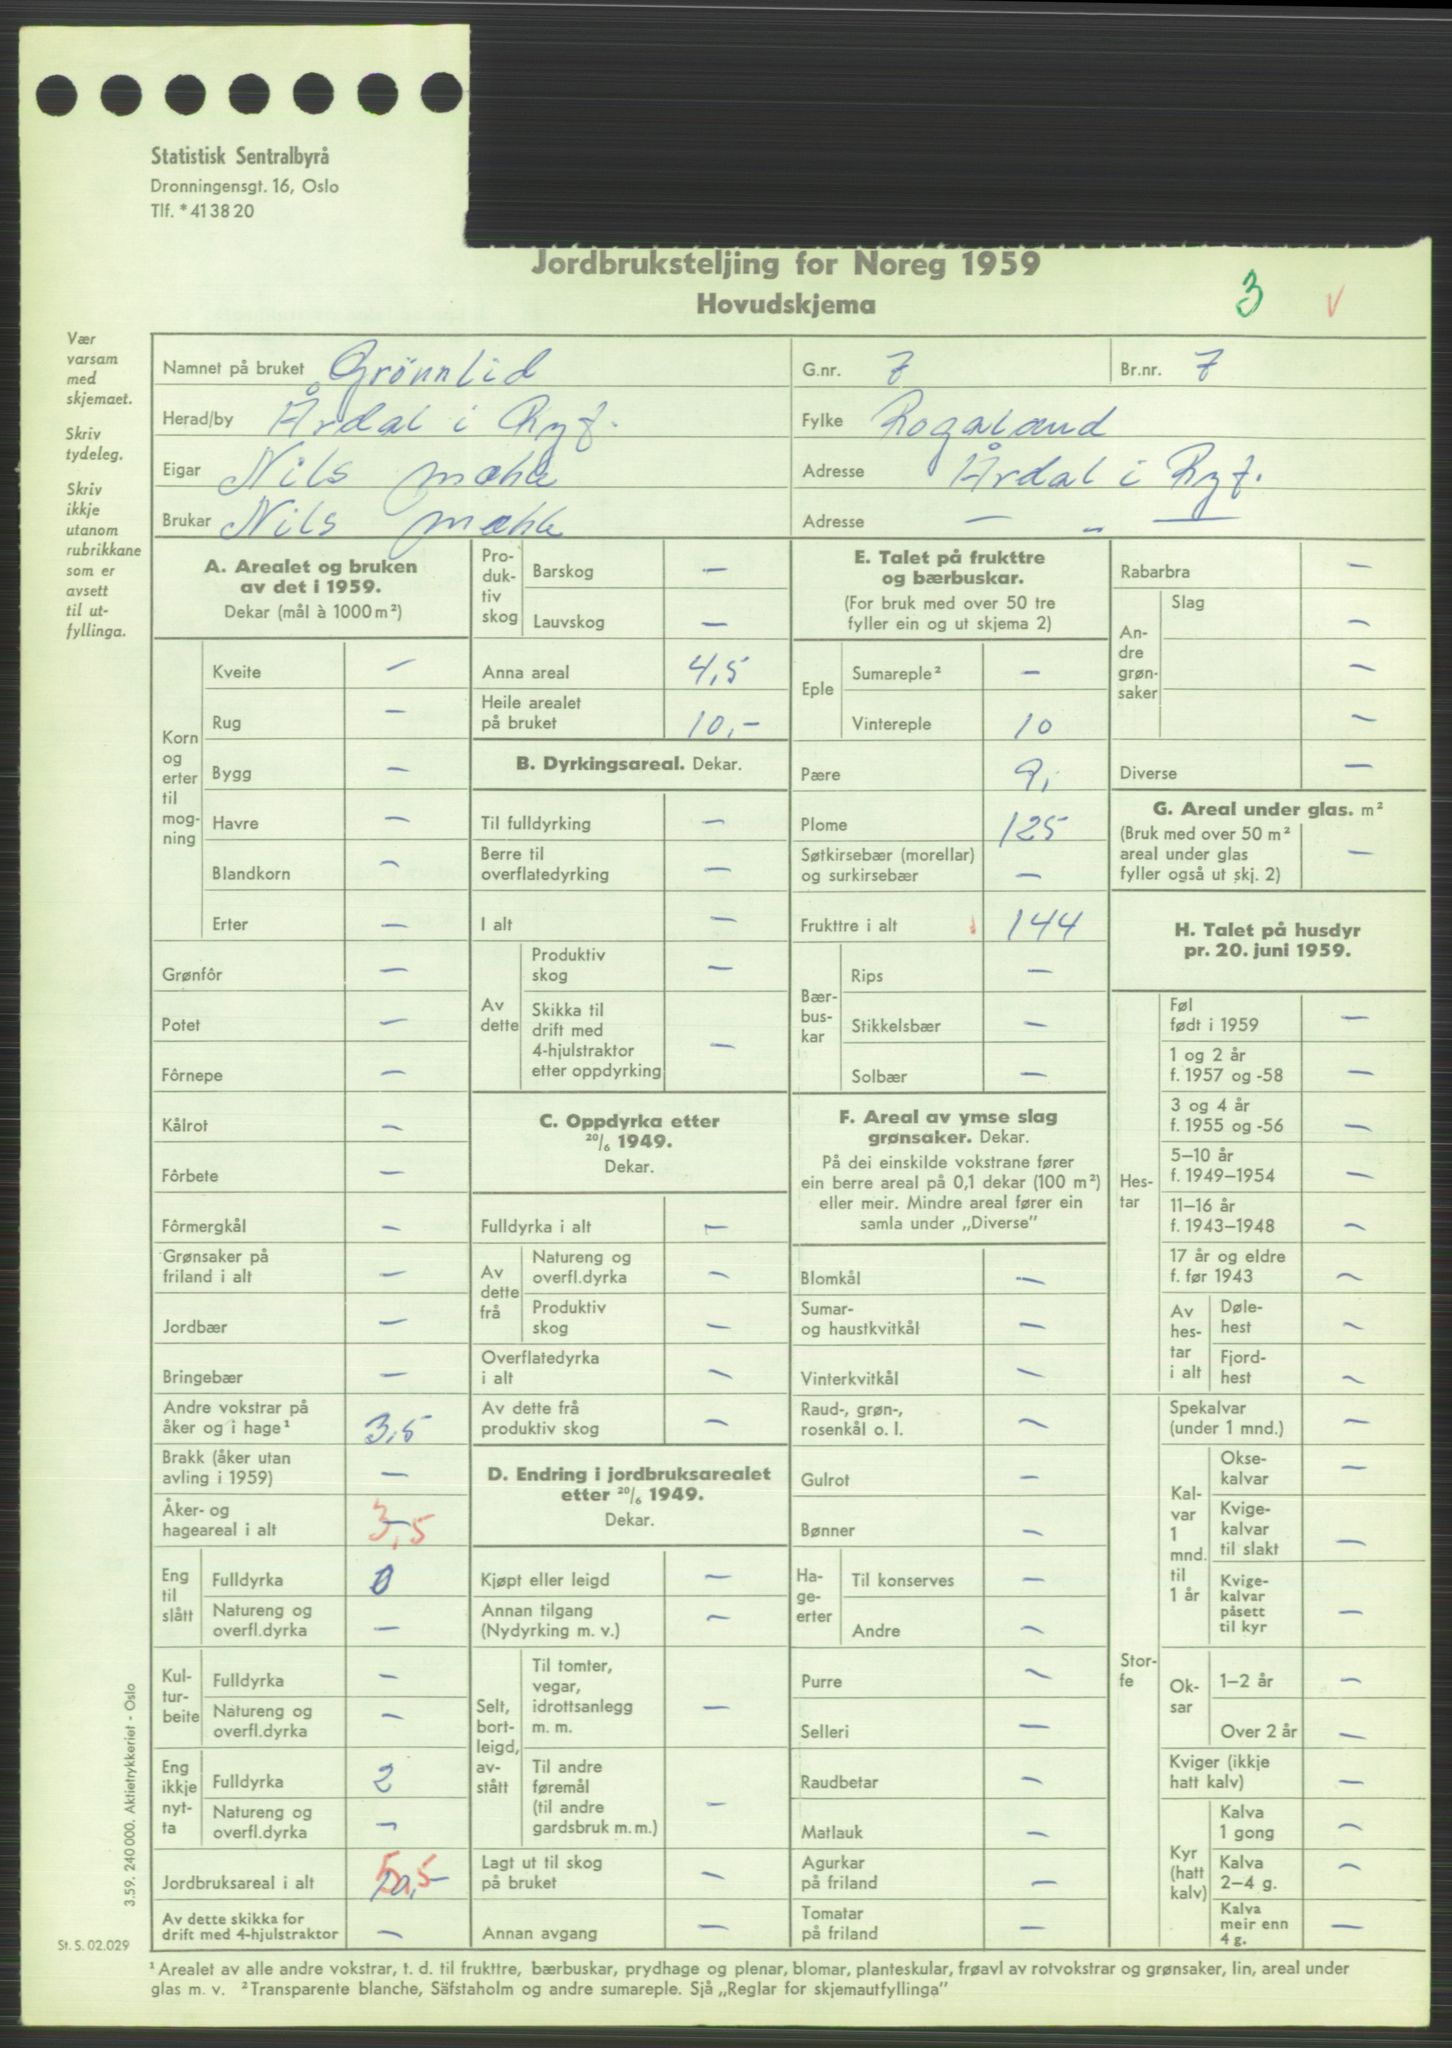 Statistisk Sentralbyrå
Dronningensgt. 16, Oslo
Tlf. *41 38 20
Jordbruksteljing for Noreg 1959
Hovudskjema
3 v
Vær
varsam
med
skjemaet.
Skriv
tydeleg.
Skriv
ikkje
utanom
rubrikkane
som er
avsett
til ut-
fyllinga.
Namnet på bruket Grönnlid G.nr. 7 Br.nr. 7
Herad/by Årdal i Ryf. Fylke Rogaland
Eigar Nils Mæhle Adresse Årdal i Ryf.
Brukar Nils Mæhle Adresse — „ —
A. Arealet og bruken
av det i 1959.
Dekar (mål à 1000 m²)
Korn
og
erter
til
mog-
ning
Kveite —
Rug —
Bygg —
Havre —
Blandkorn —
Erter —
Grønfôr —
Potet —
Fôrnepe —
Kålrot —
Fôrbete —
Fôrmergkål —
Grønsaker på
friland i alt —
Jordbær —
Bringebær —
Andre vokstrar på
åker og i hage¹ 3,5
Brakk (åker utan
avling i 1959) —
Åker- og
hageareal i alt — 3,5
Eng
til
slått
Fulldyrka 0
Natureng og
overfl.dyrka —
Kul-
tur-
beite
Fulldyrka —
Natureng og
overfl.dyrka —
Eng
ikkje
nyt-
ta
Fulldyrka 2
Natureng og
overfl.dyrka —
Jordbruksareal i alt 5,5
Av dette skikka for
drift med 4-hjulstraktor —
Pro-
duk-
tiv
skog
Barskog —
Lauvskog —
Anna areal 4,5
Heile arealet
på bruket 10,-
B. Dyrkingsareal. Dekar.
Til fulldyrking —
Berre til
overflatedyrking —
I alt —
Av
dette
Produktiv
skog —
Skikka til
drift med
4-hjulstraktor
etter oppdyrking —
C. Oppdyrka etter
20/6 1949.
Dekar.
Fulldyrka i alt —
Av
dette
frå
Natureng og
overfl.dyrka —
Produktiv
skog —
Overflatedyrka
i alt —
Av dette frå
produktiv skog —
D. Endring i jordbruksarealet
etter 20/6 1949.
Dekar.
Kjøpt eller leigd —
Annan tilgang
(Nydyrking m. v.) —
Selt,
bort-
leigd,
av-
stått
Til tomter,
vegar,
idrottsanlegg
m. m. —
Til andre
føremål
(til andre
gardsbruk m. m.) —
Lagt ut til skog
på bruket —
Annan avgang —
E. Talet på frukttre
og bærbuskar.
(For bruk med over 50 tre
fyller ein og ut skjema 2)
Eple
Sumareple² —
Vintereple 10
Pære 9,
Plome 125
Søtkirsebær (morellar)
og surkirsebær —
Frukttre i alt 144
Bær-
bus-
kar
Rips —
Stikkelsbær —
Solbær —
F. Areal av ymse slag
grønsaker. Dekar.
På dei einskilde vokstrane fører
ein berre areal på 0,1 dekar (100 m²)
eller meir. Mindre areal fører ein
samla under „Diverse”
Blomkål —
Sumar-
og haustkvitkål —
Vinterkvitkål —
Raud-, grøn-,
rosenkål o. l. —
Gulrot —
Bønner —
Ha-
ge-
erter
Til konserves —
Andre —
Purre —
Selleri —
Raudbetar —
Matlauk —
Agurkar
på friland —
Tomatar
på friland —
Rabarbra —
An-
dre
grøn-
saker
Slag
—
—
—
Diverse —
G. Areal under glas. m²
(Bruk med over 50 m²
areal under glas
fyller også ut skj. 2) —
H. Talet på husdyr
pr. 20. juni 1959.
Hes-
tar
Føl
født i 1959 —
1 og 2 år
f. 1957 og -58 —
3 og 4 år
f. 1955 og -56 —
5–10 år
f. 1949–1954 —
11–16 år
f. 1943–1948 —
17 år og eldre
f. før 1943 —
Av
hes-
tar
i alt
Døle-
hest —
Fjord-
hest —
Stor-
fe
Spekalvar
(under 1 mnd.) —
Kal-
var
1
mnd.
til
1 år
Okse-
kalvar —
Kvige-
kalvar
til slakt —
Kvige-
kalvar
påsett
til kyr —
Ok-
sar
1–2 år —
Over 2 år —
Kviger (ikkje
hatt kalv) —
Kyr
(hatt
kalv)
Kalva
1 gong —
Kalva
2–4 g. —
Kalva
meir enn
4 g. —
3.59. 240 000. Aktietrykkeriet - Oslo
St. S. 02.029
¹ Arealet av alle andre vokstrar, t. d. til frukttre, bærbuskar, prydhage og plenar, blomar, planteskular, frøavl av rotvokstrar og grønsaker, lin, areal under
glas m. v. ² Transparente blanche, Säfstaholm og andre sumareple. Sjå „Reglar for skjemautfyllinga”